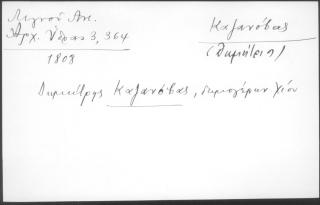 Λιγνού Αν.
Αρχ. Ύδρας 3, 364
1808
Καζανόβας
(Δημήτρης)
Δημήτρης Καζανόβας, δημογέρων Χίου